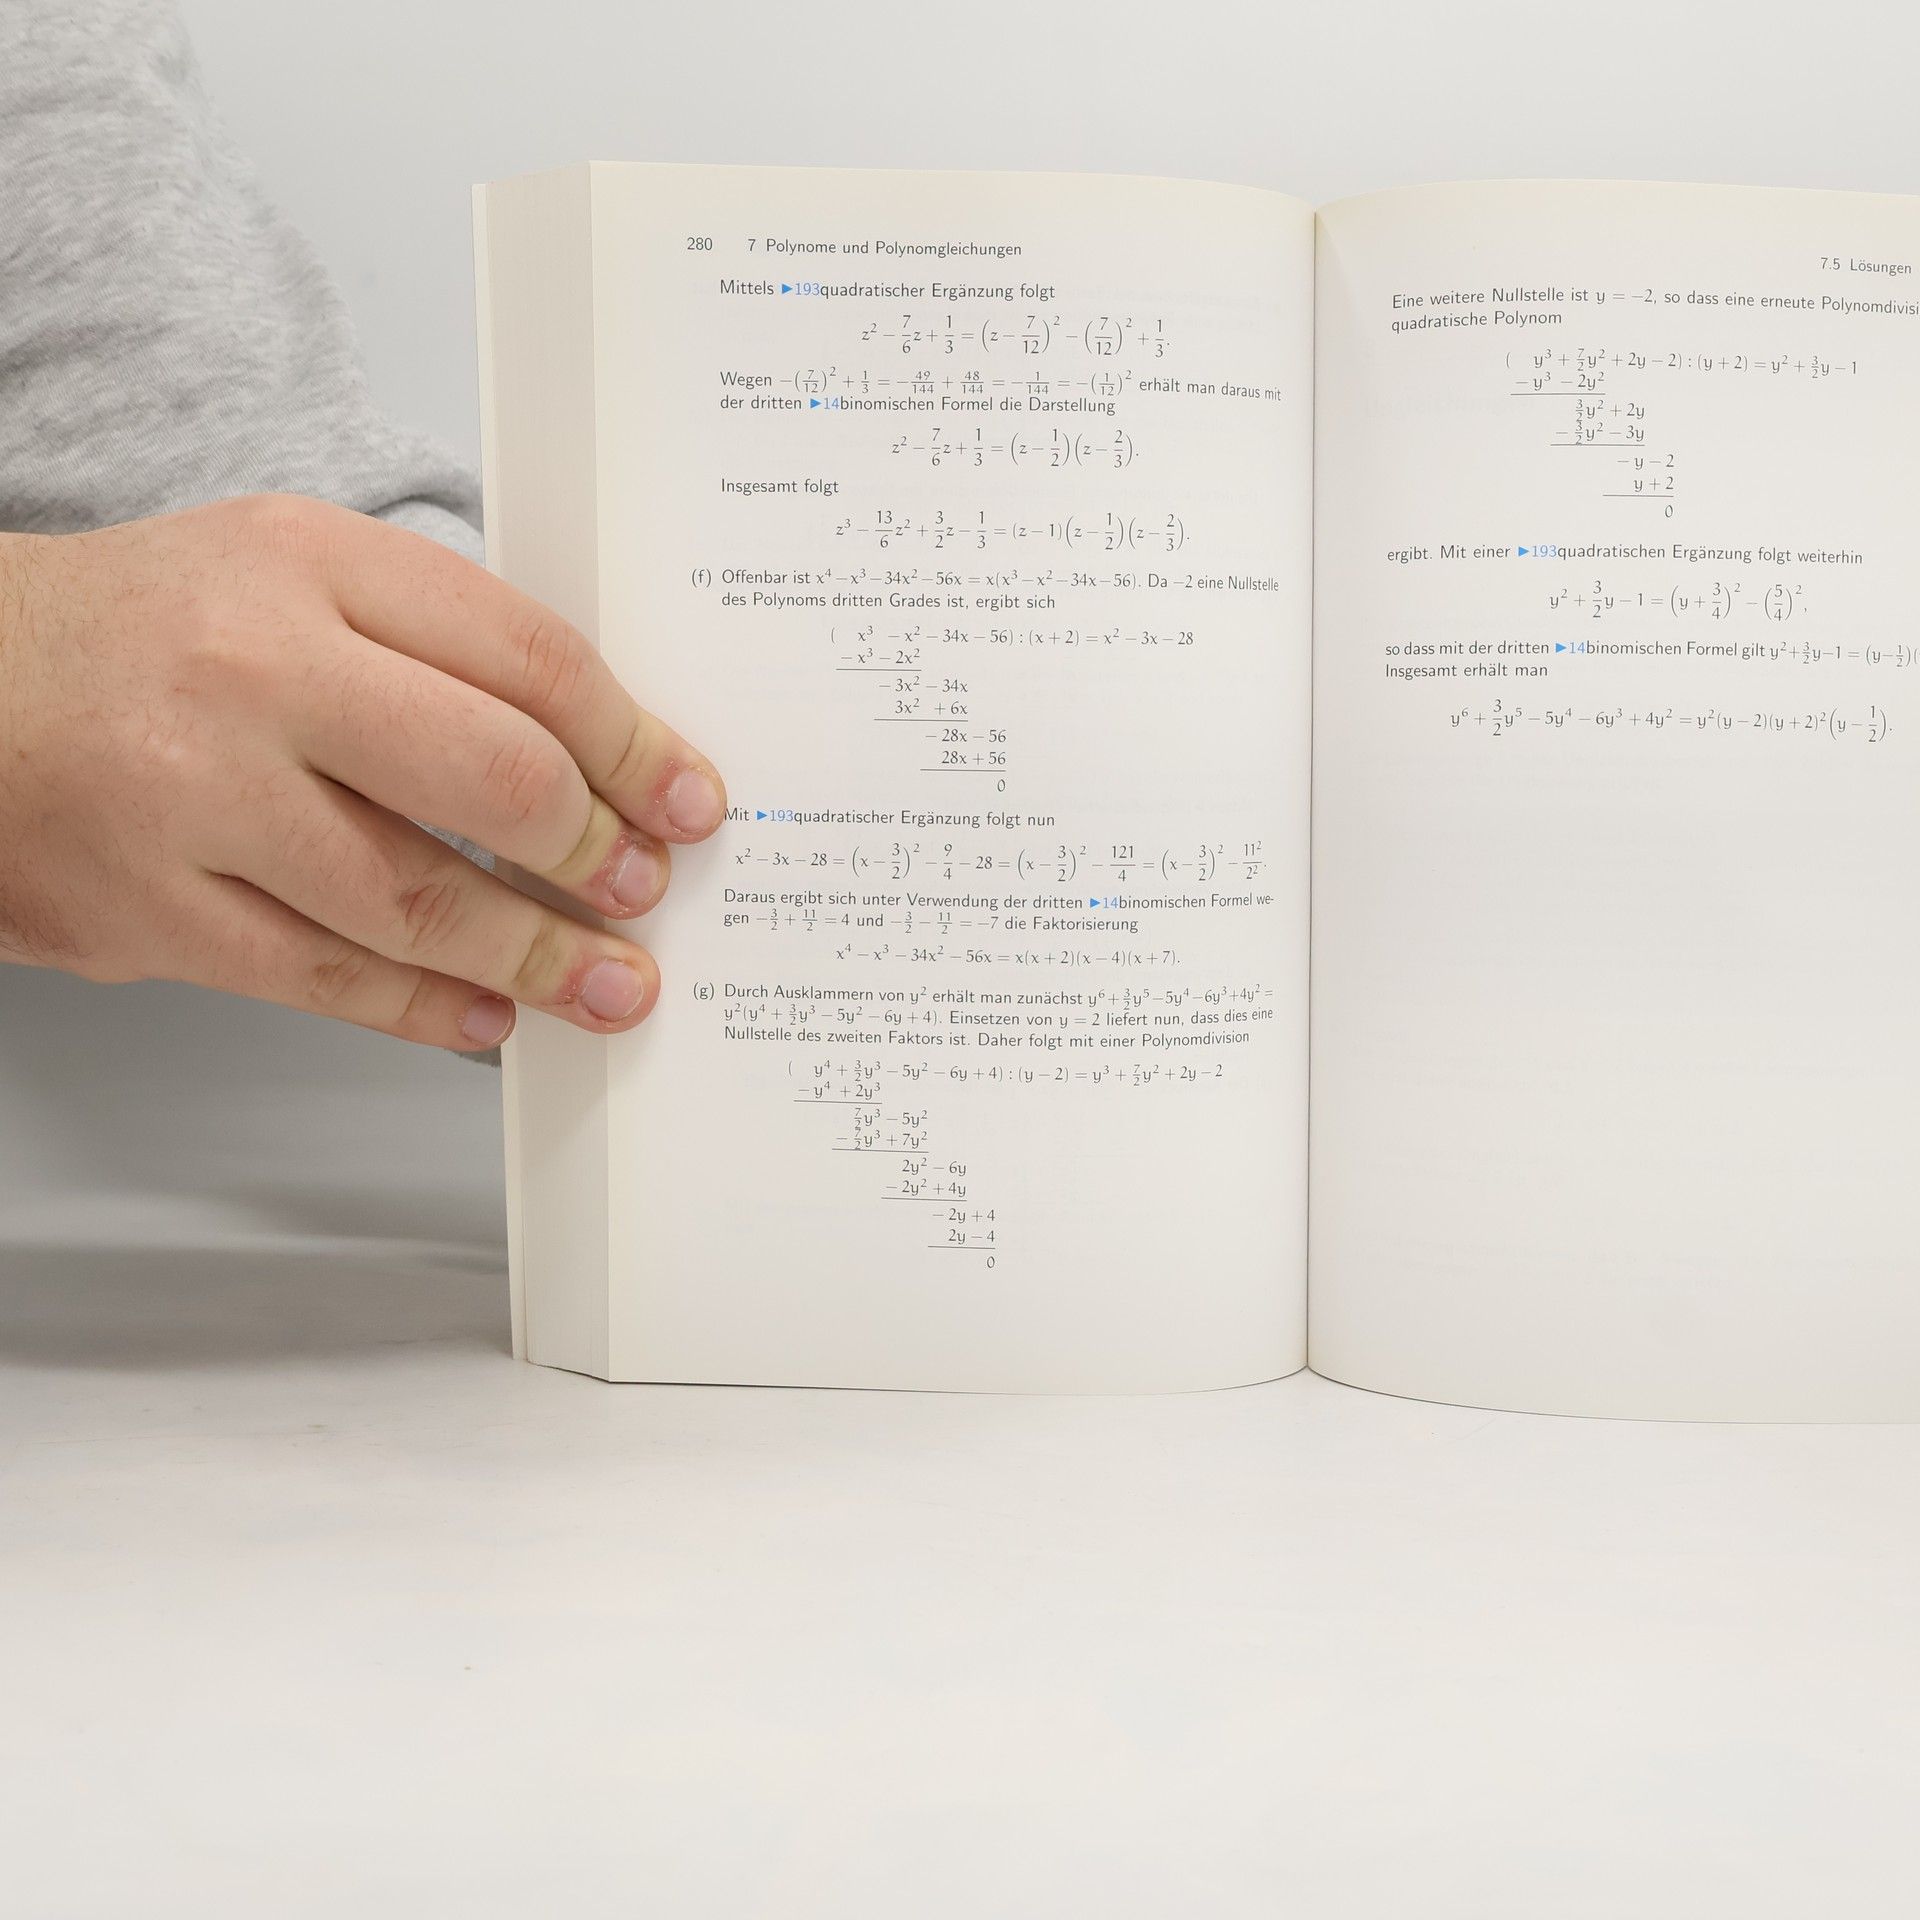 280 7 Polynome und Polynomgleichungen
Mittels ▶193quadratischer Ergänzung folgt
z² − 7/6 z + 1/3 = (z − 7/12)² − (7/12)² + 1/3.
Wegen −(7/12)² + 1/3 = −49/144 + 48/144 = −1/144 = −(1/12)² erhält man daraus mit
der dritten ▶14binomischen Formel die Darstellung
z² − 7/6 z + 1/3 = (z − 1/2)(z − 2/3).
Insgesamt folgt
z³ − 13/6 z² + 3/2 z − 1/3 = (z − 1)(z − 1/2)(z − 2/3).
(f) Offenbar ist x⁴ − x³ − 34x² − 56x = x(x³ − x² − 34x − 56). Da −2 eine Nullstelle
des Polynoms dritten Grades ist, ergibt sich
( x³ − x² − 34x − 56) : (x + 2) = x² − 3x − 28
− x³ − 2x²
− 3x² − 34x
3x² + 6x
− 28x − 56
28x + 56
0
Mit ▶193quadratischer Ergänzung folgt nun
x² − 3x − 28 = (x − 3/2)² − 9/4 − 28 = (x − 3/2)² − 121/4 = (x − 3/2)² − 11²/2².
Daraus ergibt sich unter Verwendung der dritten ▶14binomischen Formel we-
gen −3/2 + 11/2 = 4 und −3/2 − 11/2 = −7 die Faktorisierung
x⁴ − x³ − 34x² − 56x = x(x + 2)(x − 4)(x + 7).
(g) Durch Ausklammern von y² erhält man zunächst y⁶ + 3/2 y⁵ − 5y⁴ − 6y³ + 4y² =
y²(y⁴ + 3/2 y³ − 5y² − 6y + 4). Einsetzen von y = 2 liefert nun, dass dies eine
Nullstelle des zweiten Faktors ist. Daher folgt mit einer Polynomdivision
( y⁴ + 3/2 y³ − 5y² − 6y + 4) : (y − 2) = y³ + 7/2 y² + 2y − 2
− y⁴ + 2y³
7/2 y³ − 5y²
− 7/2 y³ + 7y²
2y² − 6y
− 2y² + 4y
− 2y + 4
2y − 4
0
7.5 Lösungen
Eine weitere Nullstelle ist y = −2, so dass eine erneute Polynomdivisi
quadratische Polynom
( y³ + 7/2 y² + 2y − 2) : (y + 2) = y² + 3/2 y − 1
− y³ − 2y²
3/2 y² + 2y
− 3/2 y² − 3y
− y − 2
y + 2
0
ergibt. Mit einer ▶193quadratischen Ergänzung folgt weiterhin
y² + 3/2 y − 1 = (y + 3/4)² − (5/4)²,
so dass mit der dritten ▶14binomischen Formel gilt y² + 3/2 y − 1 = (y − 1/2)(
Insgesamt erhält man
y⁶ + 3/2 y⁵ − 5y⁴ − 6y³ + 4y² = y²(y − 2)(y + 2)²(y − 1/2).